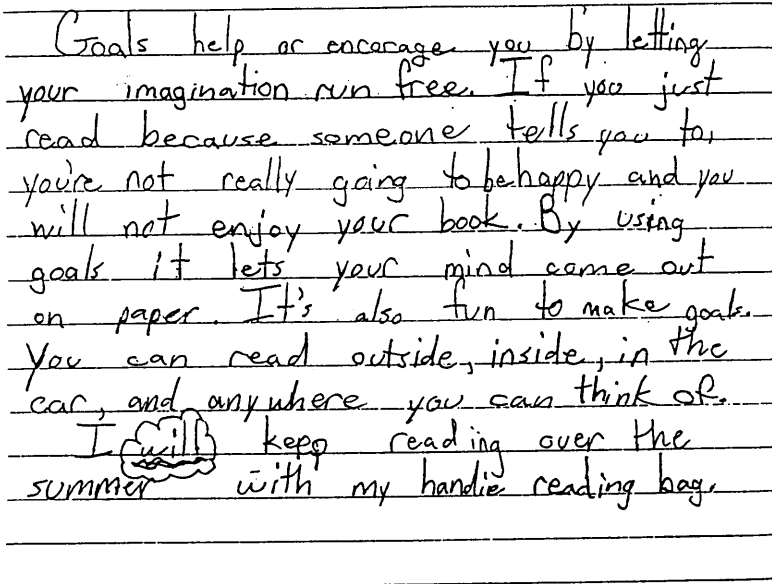 Goals help or encorage you by letting
your imagination run free. If you just
read because someone tells you to,
you're not really going to be happy and you
will not enjoy your book. By using
goals it lets your mind come out
on paper. It's also fun to make goals.
You can read outside, inside, in the
car, and anywhere you can think of.
I will kepp reading over the
summer with my handie reading bag.